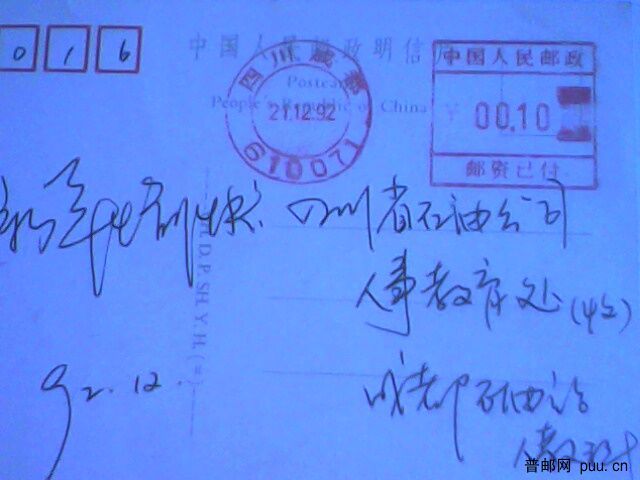 016
中国人民邮政明信片
Postcard
People's Republic of China
四川成都
21.12.92
610071
中国人民邮政
¥ 00.10
邮资已付
新年愉快
四川省石油公司
人事教育处(收)
H.D.P.SH.Y.H.(=)
92.12.
成都石油
普邮网 puu.cn